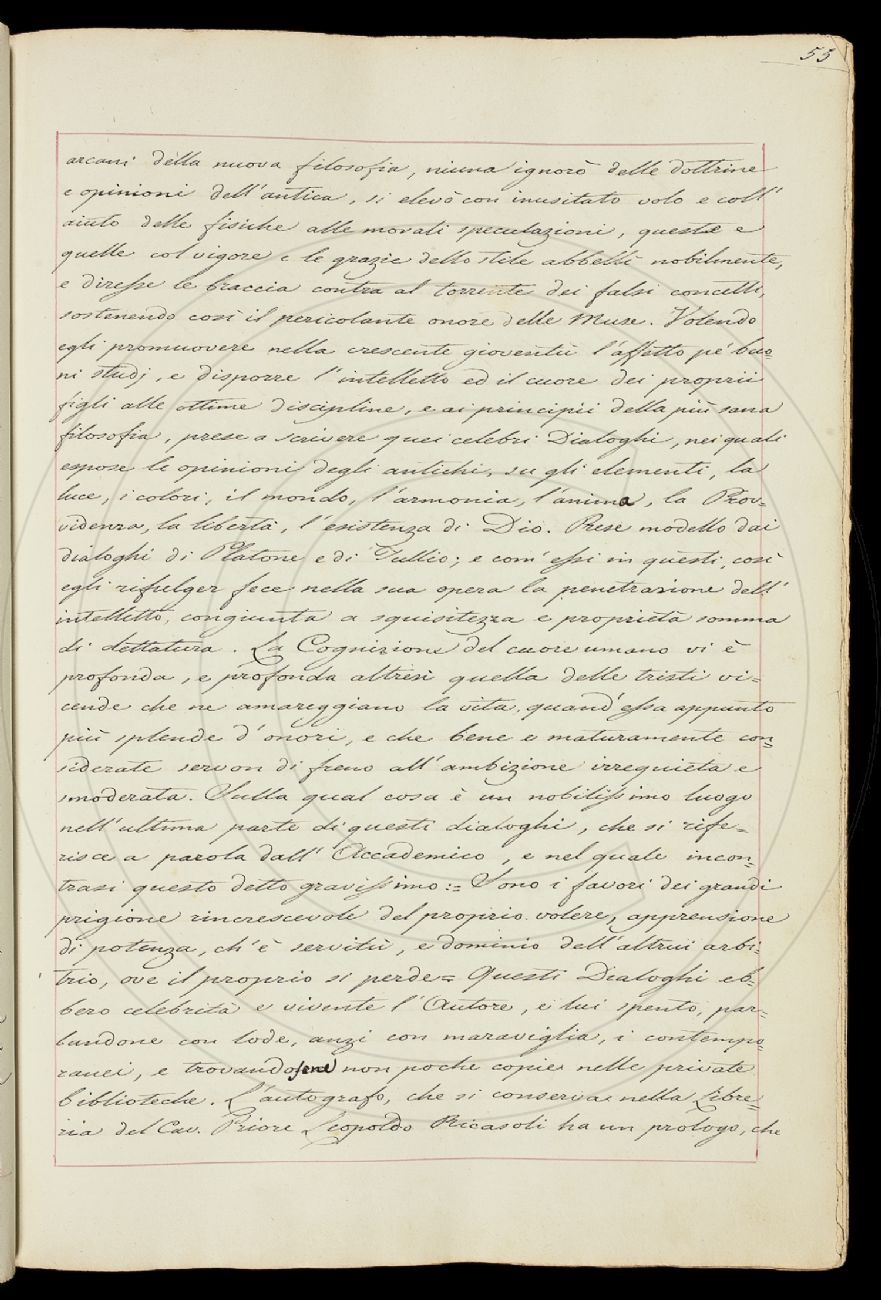 53
arcani della nuova filosofia, niuna ignorò delle dottrine
e opinioni dell'antica, si elevò con inusitato volo e coll'
aiuto delle fisiche alle morali speculazioni, queste e
quelle col vigore e le grazie dello stile abbellì nobilmente,
e diresse le braccia contra al torrente dei falsi concetti,
sostenendo così il pericolante onore delle Muse. Volendo
egli promuovere nella crescente gioventù l'affetto pe' buo=
ni studj, e disporre l'intelletto ed il cuore dei proprii
figli alle ottime discipline, e ai principii della più sana
filosofia, prese a scrivere quei celebri Dialoghi, nei quali
espose le opinioni degli antichi, su gli elementi, la
luce, i colori, il mondo, l'armonia, l'anima, la Prov=
videnza, la libertà, l'esistenza di Dio. Prese modello dai
dialoghi di Platone e di Tullio; e com'essi in questi, così
egli rifulger fece nella sua opera la penetrazione dell'
intelletto, congiunta a squisitezza e proprietà somma
di dettatura. La Cognizione del cuore umano vi è
profonda, e profonda altresì quella delle tristi vi=
cende che ne amareggiano la vita, quand'essa appunto
più splende d'onori, e che bene e maturamente con=
siderate servon di freno all'ambizione irrequieta e
smoderata. Sulla qual cosa è un nobilissimo luogo
nell'ultima parte di questi dialoghi, che si rife=
risce a parola dall'Accademico, e nel quale incon=
trasi questo detto gravissimo := Sono i favori dei grandi
prigione rincrescevole del proprio volere, apprensione
di potenza, ch'è servitù, e dominio dell'altrui arbi=
trio, ove il proprio si perde= Questi Dialoghi eb=
bero celebrità e vivente l'Autore, e lui spento, par=
landone con lode, anzi con maraviglia, i contempo=
ranei, e trovandosene non poche copie nelle private
biblioteche. L'autografo, che si conserva nella Libre=
ria del Cav. Priore Leopoldo Ricasoli ha un prologo, che